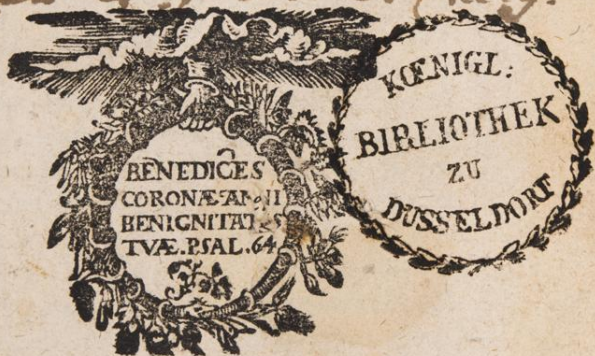 BENEDICES
CORONÆ·ANNI
BENIGNITATIS
TVÆ.PSAL.64
KŒNIGL:
BIRLIOTHEK
ZU
DUSSELDORF